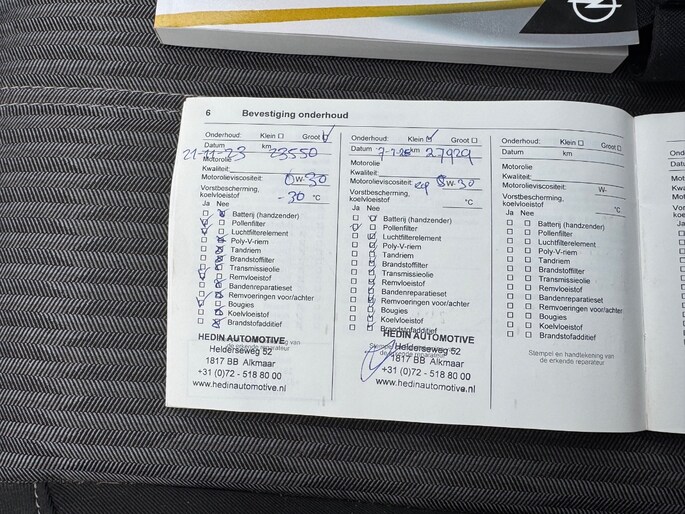 6 Bevestiging onderhoud
Onderhoud: Klein Groot
Datum km
21-11-23 23550
Motorolie
Kwaliteit:
Motorolieviscositeit: 0 W-30
Vorstbescherming,
koelvloeistof -30 °C
Ja Nee
Batterij (handzender)
Pollenfilter
Luchtfilterelement
Poly-V-riem
Tandriem
Brandstoffilter
Transmissieolie
Remvloeistof
Bandenreparatieset
Remvoeringen voor/achter
Bougies
Koelvloeistof
Brandstofadditief
HEDIN AUTOMOTIVE
Helderseweg 52
de erkende reparateur
1817 BB Alkmaar
+31 (0)72 - 518 80 00
www.hedinautomotive.nl
Onderhoud: Klein Groot
Datum 7-1-25 km 27929
Motorolie
Kwaliteit:
Motorolieviscositeit: 0 W-30
Vorstbescherming,
koelvloeistof °C
Ja Nee
Batterij (handzender)
Pollenfilter
Luchtfilterelement
Poly-V-riem
Tandriem
Brandstoffilter
Transmissieolie
Remvloeistof
Bandenreparatieset
Remvoeringen voor/achter
Bougies
Koelvloeistof
Brandstofadditief
HEDIN AUTOMOTIVE
Helderseweg 52
de erkende reparateur
1817 BB Alkmaar
+31 (0)72 - 518 80 00
www.hedinautomotive.nl
Onderhoud: Klein Groot
Datum km
Motorolie
Kwaliteit:
Motorolieviscositeit: W-
Vorstbescherming,
koelvloeistof °C
Ja Nee
Batterij (handzender)
Pollenfilter
Luchtfilterelement
Poly-V-riem
Tandriem
Brandstoffilter
Transmissieolie
Remvloeistof
Bandenreparatieset
Remvoeringen voor/achter
Bougies
Koelvloeistof
Brandstofadditief
Stempel en handtekening van
de erkende reparateur